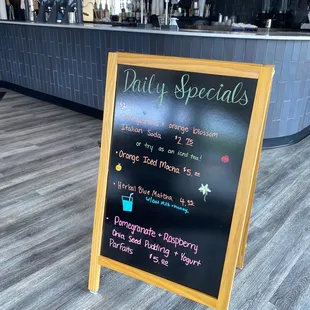 Daily Specials
orange blossom
Italian Soda $2.75
or try as an iced tea!
• Orange Iced Mocha $5.00
• Herbal Blue Matcha 4.95
w/oat milk + honey
Pomegranate + Raspberry
Chia Seed Pudding + Yogurt
Parfaits $5.00